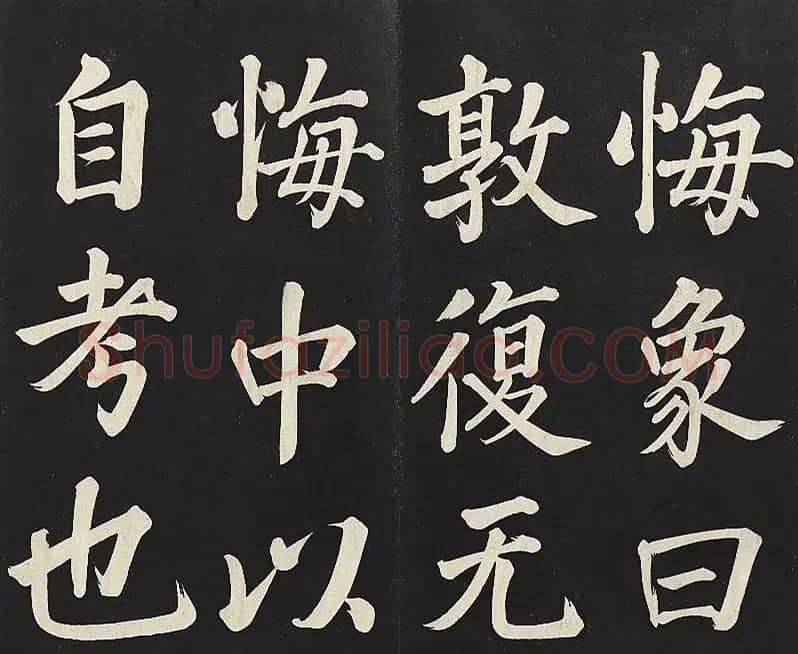 悔象曰
敦復无
悔中以
自考也
Shufaziliao.COM